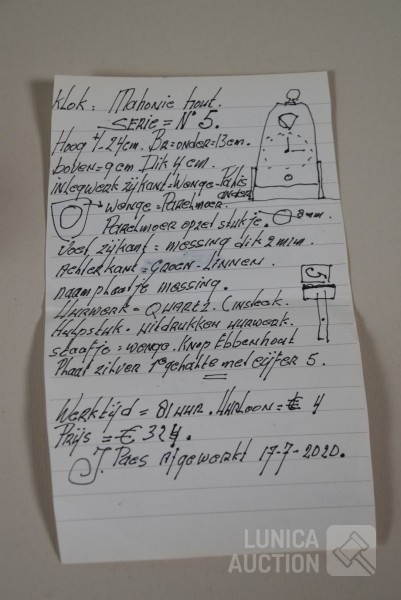 Klok: Mahonie hout.
SERIE = Nº 5.
Hoog +/- 24cm. Br = onder = 13cm.
boven = 9cm Dik 4cm.
inlegwerk zijkant = Wenge -
onder
Wenge = Parelmoer
Parelmoer opzet stukje. 8mm.
Voet zijkant = messing dik 2mm.
Achterkant = GROEN-LINNEN.
naamplaatje messing.
5
Uurwerk = QUARTZ. (insteek.
Hulpstuk. uitdrukken uurwerk.
staafje = wenge. Knop Ebbenhout
Plaat zilver 1e gehalte met cijfer 5.
Werktijd = 81 uur. Uurloon = € 4
Prijs = € 324.
J. Paes Afgewerkt 17-7-2020.
LUNICA
AUCTION